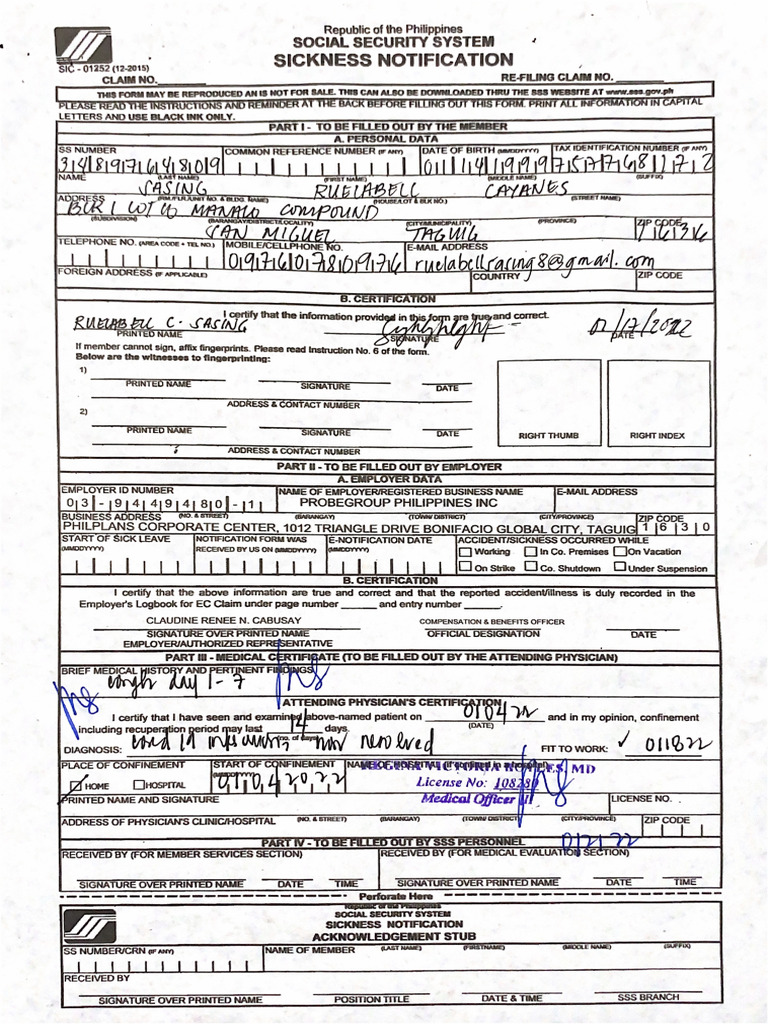 Republic of the Philippines
SOCIAL SECURITY SYSTEM
SICKNESS NOTIFICATION
SIC - 01252 (12-2015)
CLAIM NO. RE-FILING CLAIM NO.
THIS FORM MAY BE REPRODUCED AN IS NOT FOR SALE. THIS CAN ALSO BE DOWNLOADED THRU THE SSS WEBSITE AT www.sss.gov.ph
PLEASE READ THE INSTRUCTIONS AND REMINDER AT THE BACK BEFORE FILLING OUT THIS FORM. PRINT ALL INFORMATION IN CAPITAL
LETTERS AND USE BLACK INK ONLY.
PART I - TO BE FILLED OUT BY THE MEMBER
A. PERSONAL DATA
SS NUMBER COMMON REFERENCE NUMBER (IF ANY) DATE OF BIRTH (MMDDYYYY) TAX IDENTIFICATION NUMBER (IF ANY)
3489764809 01141991 757768172
NAME (LAST NAME) (FIRST NAME) (MIDDLE NAME) (SUFFIX)
SASING RUELABELL CAYANES
ADDRESS (RM./FLR./UNIT NO. & BLDG. NAME) (HOUSE/LOT & BLK NO.) (STREET NAME)
BLK 1 LOT 6 MANALO COMPOUND
(SUBDIVISION) (BARANGAY/DISTRICT/LOCALITY) (CITY/MUNICIPALITY) (PROVINCE) ZIP CODE
SAN MIGUEL TAGUIG 1636
TELEPHONE NO. (AREA CODE + TEL NO.) MOBILE/CELLPHONE NO. E-MAIL ADDRESS
09760780976 ruelabellsasing8@gmail.com
FOREIGN ADDRESS (IF APPLICABLE) COUNTRY ZIP CODE
B. CERTIFICATION
I certify that the information provided in this form are true and correct.
RUELABELL C. SASING 02/17/2022
PRINTED NAME SIGNATURE DATE
If member cannot sign, affix fingerprints. Please read Instruction No. 6 of the form.
Below are the witnesses to fingerprinting:
1)
PRINTED NAME SIGNATURE DATE
ADDRESS & CONTACT NUMBER
2)
PRINTED NAME SIGNATURE DATE
RIGHT THUMB RIGHT INDEX
ADDRESS & CONTACT NUMBER
PART II - TO BE FILLED OUT BY EMPLOYER
A. EMPLOYER DATA
EMPLOYER ID NUMBER NAME OF EMPLOYER/REGISTERED BUSINESS NAME E-MAIL ADDRESS
03-9449480-1 PROBEGROUP PHILIPPINES INC
BUSINESS ADDRESS (NO. & STREET) (BARANGAY) (TOWN/ DISTRICT) (CITY/PROVINCE) ZIP CODE
PHILPLANS CORPORATE CENTER, 1012 TRIANGLE DRIVE BONIFACIO GLOBAL CITY, TAGUIG 1630
START OF SICK LEAVE NOTIFICATION FORM WAS E-NOTIFICATION DATE ACCIDENT/SICKNESS OCCURRED WHILE
(MMDDYYYY) RECEIVED BY US ON (MMDDYYYY) (MMDDYYYY) Working In Co. Premises On Vacation
On Strike Co. Shutdown Under Suspension
B. CERTIFICATION
I certify that the above information are true and correct and that the reported accident/illness is duly recorded in the
Employer's Logbook for EC Claim under page number and entry number .
CLAUDINE RENEE N. CABUSAY COMPENSATION & BENEFITS OFFICER
SIGNATURE OVER PRINTED NAME OFFICIAL DESIGNATION DATE
EMPLOYER/AUTHORIZED REPRESENTATIVE
PART III - MEDICAL CERTIFICATE (TO BE FILLED OUT BY THE ATTENDING PHYSICIAN)
BRIEF MEDICAL HISTORY AND PERTINENT FINDINGS
cough day 1-7
ATTENDING PHYSICIAN'S CERTIFICATION
I certify that I have seen and examined above-named patient on 010422 and in my opinion, confinement
including recuperation period may last 14 days. (DATE)
(no. of days)
DIAGNOSIS: covid 19 infection now resolved FIT TO WORK: ✓ 011822
PLACE OF CONFINEMENT START OF CONFINEMENT
HOME HOSPITAL 01042022
MD
License No:
Medical Officer III
PRINTED NAME AND SIGNATURE LICENSE NO.
ADDRESS OF PHYSICIAN'S CLINIC/HOSPITAL (NO. & STREET) (BARANGAY) (TOWN/ DISTRICT) (CITY/PROVINCE) ZIP CODE
PART IV - TO BE FILLED OUT BY SSS PERSONNEL
012122
RECEIVED BY (FOR MEMBER SERVICES SECTION) RECEIVED BY (FOR MEDICAL EVALUATION SECTION)
SIGNATURE OVER PRINTED NAME DATE TIME SIGNATURE OVER PRINTED NAME DATE TIME
Perforate Here
Republic of the Philippines
SOCIAL SECURITY SYSTEM
SICKNESS NOTIFICATION
ACKNOWLEDGEMENT STUB
SS NUMBER/CRN (IF ANY) NAME OF MEMBER (LAST NAME) (FIRSTNAME) (MIDDLE NAME) (SUFFIX)
RECEIVED BY
SIGNATURE OVER PRINTED NAME POSITION TITLE DATE & TIME SSS BRANCH